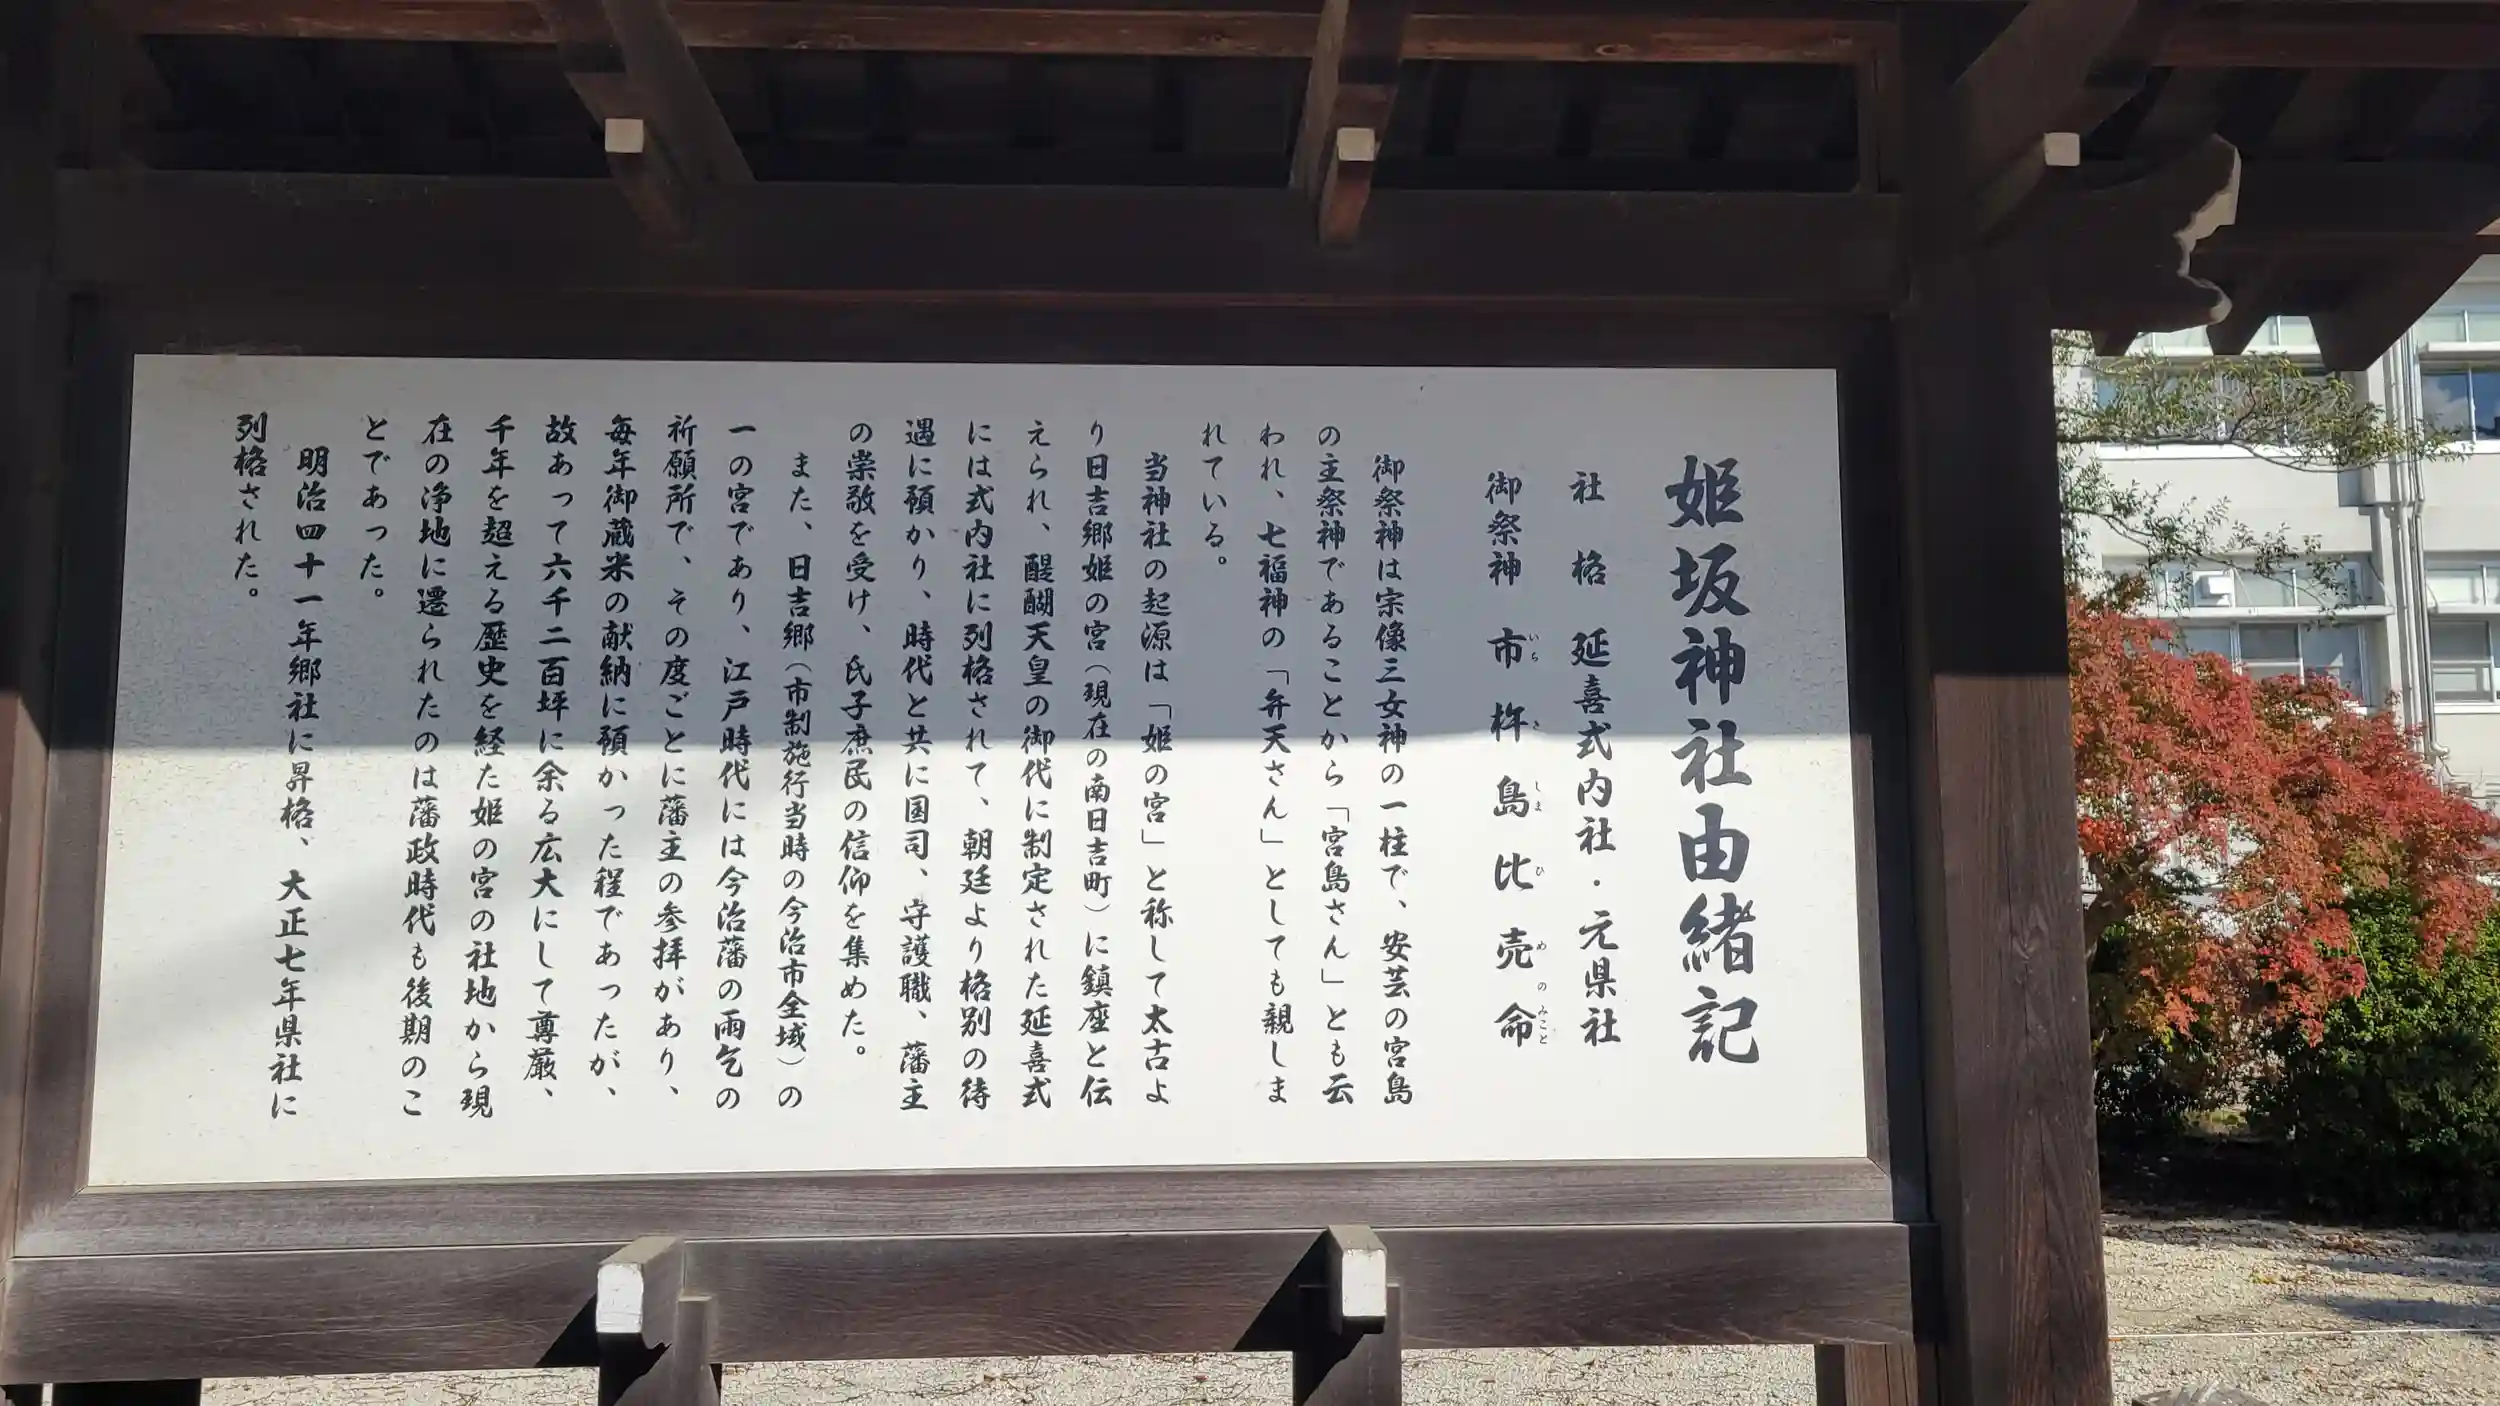 姫坂神社由緒記
社格 延喜式内社・元県社
御祭神 市杵島比売命
いちきしまひめのみこと
御祭神は宗像三女神の一柱で、安芸の宮島
の主祭神であることから「宮島さん」とも云
われ、七福神の「弁天さん」としても親しま
れている。
当神社の起源は「姫の宮」と称して太古よ
り日吉郷姫の宮(現在の南日吉町)に鎮座と伝
えられ、醍醐天皇の御代に制定された延喜式
には式内社に列格されて、朝廷より格別の待
遇に預かり、時代と共に国司、守護職、藩主
の崇敬を受け、氏子庶民の信仰を集めた。
また、日吉郷(市制施行当時の今治市全域)の
一の宮であり、江戸時代には今治藩の雨乞の
祈願所で、その度ごとに藩主の参拝があり、
毎年御蔵米の献納に預かった程であったが、
故あって六千二百坪に余る広大にして尊厳、
千年を超える歴史を経た姫の宮の社地から現
在の浄地に遷られたのは藩政時代も後期のこ
とであった。
明治四十一年郷社に昇格、大正七年県社に
列格された。